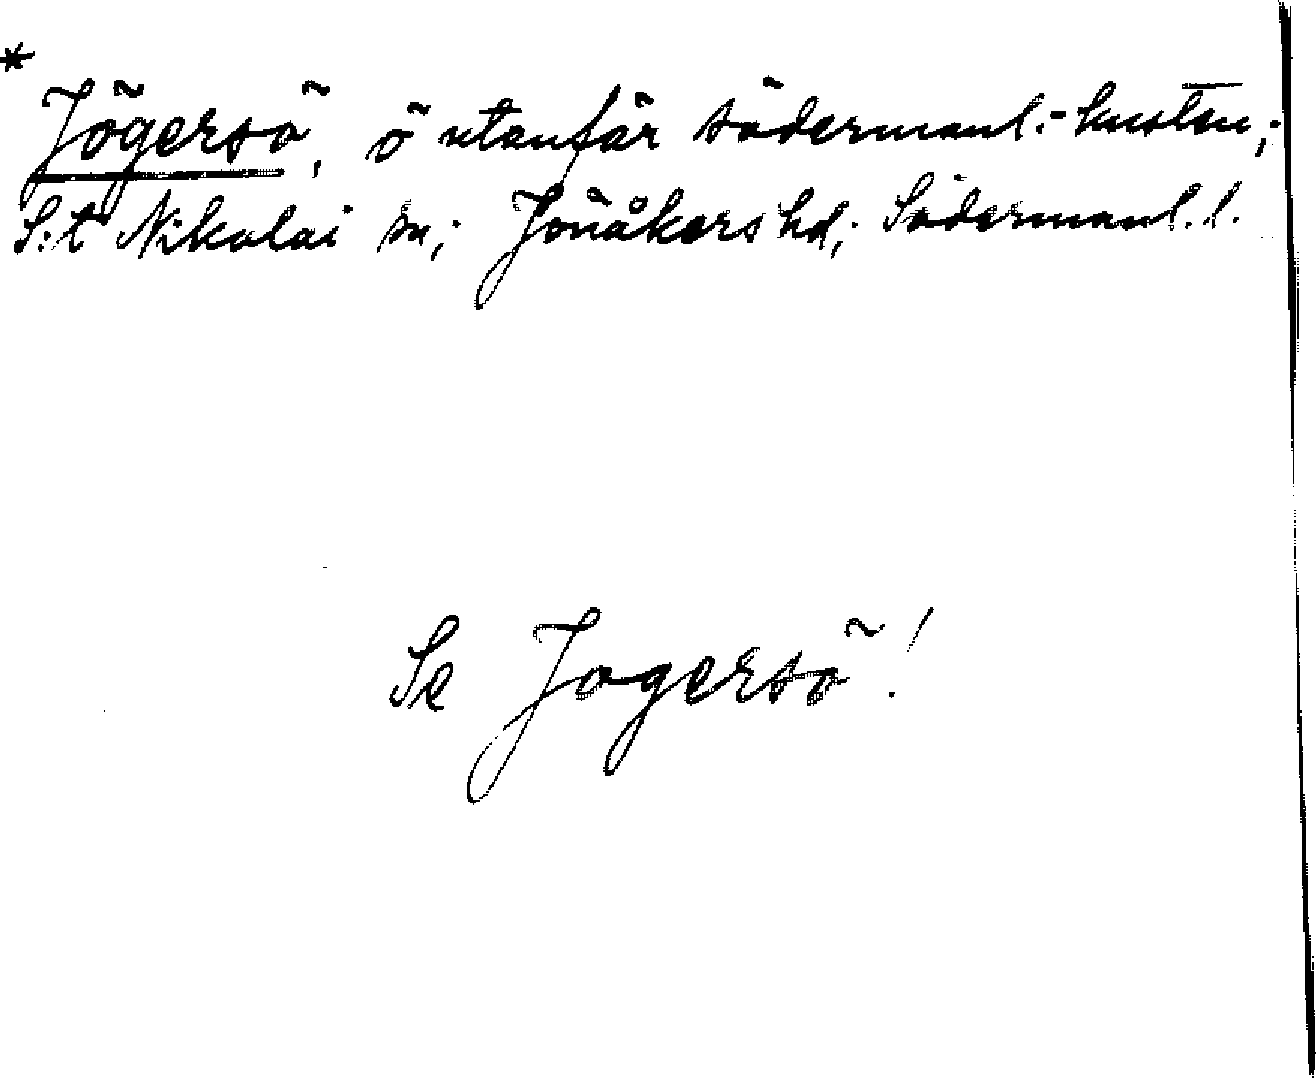 *
Jögersö, ö utanför södermanl.-kusten;
S:t Nikolai sn; Jönåkers hd; Södermanl. l.
Se Jogersö!